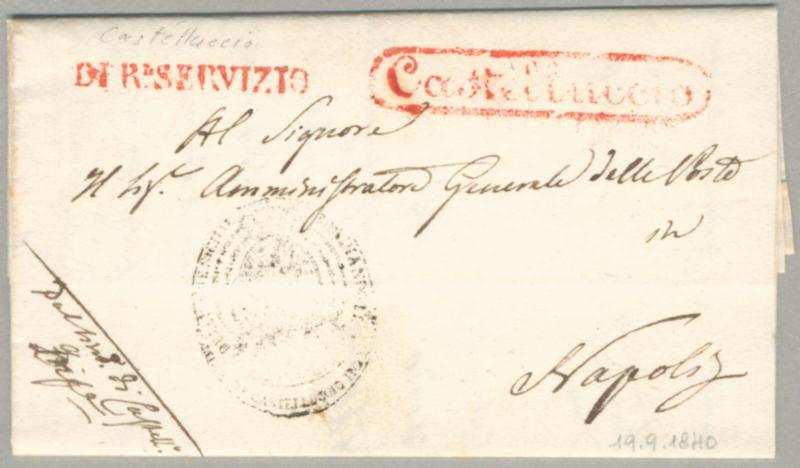 Castelluccio
DI R.ᵉ SERVIZIO
Castelluccio
Al Signore
Il Sig.ʳ Amministratore Generale delle Poste
in
Napoli
Dal Sind.º di Castell.º
CASTELLUCCIO
19.9.1840